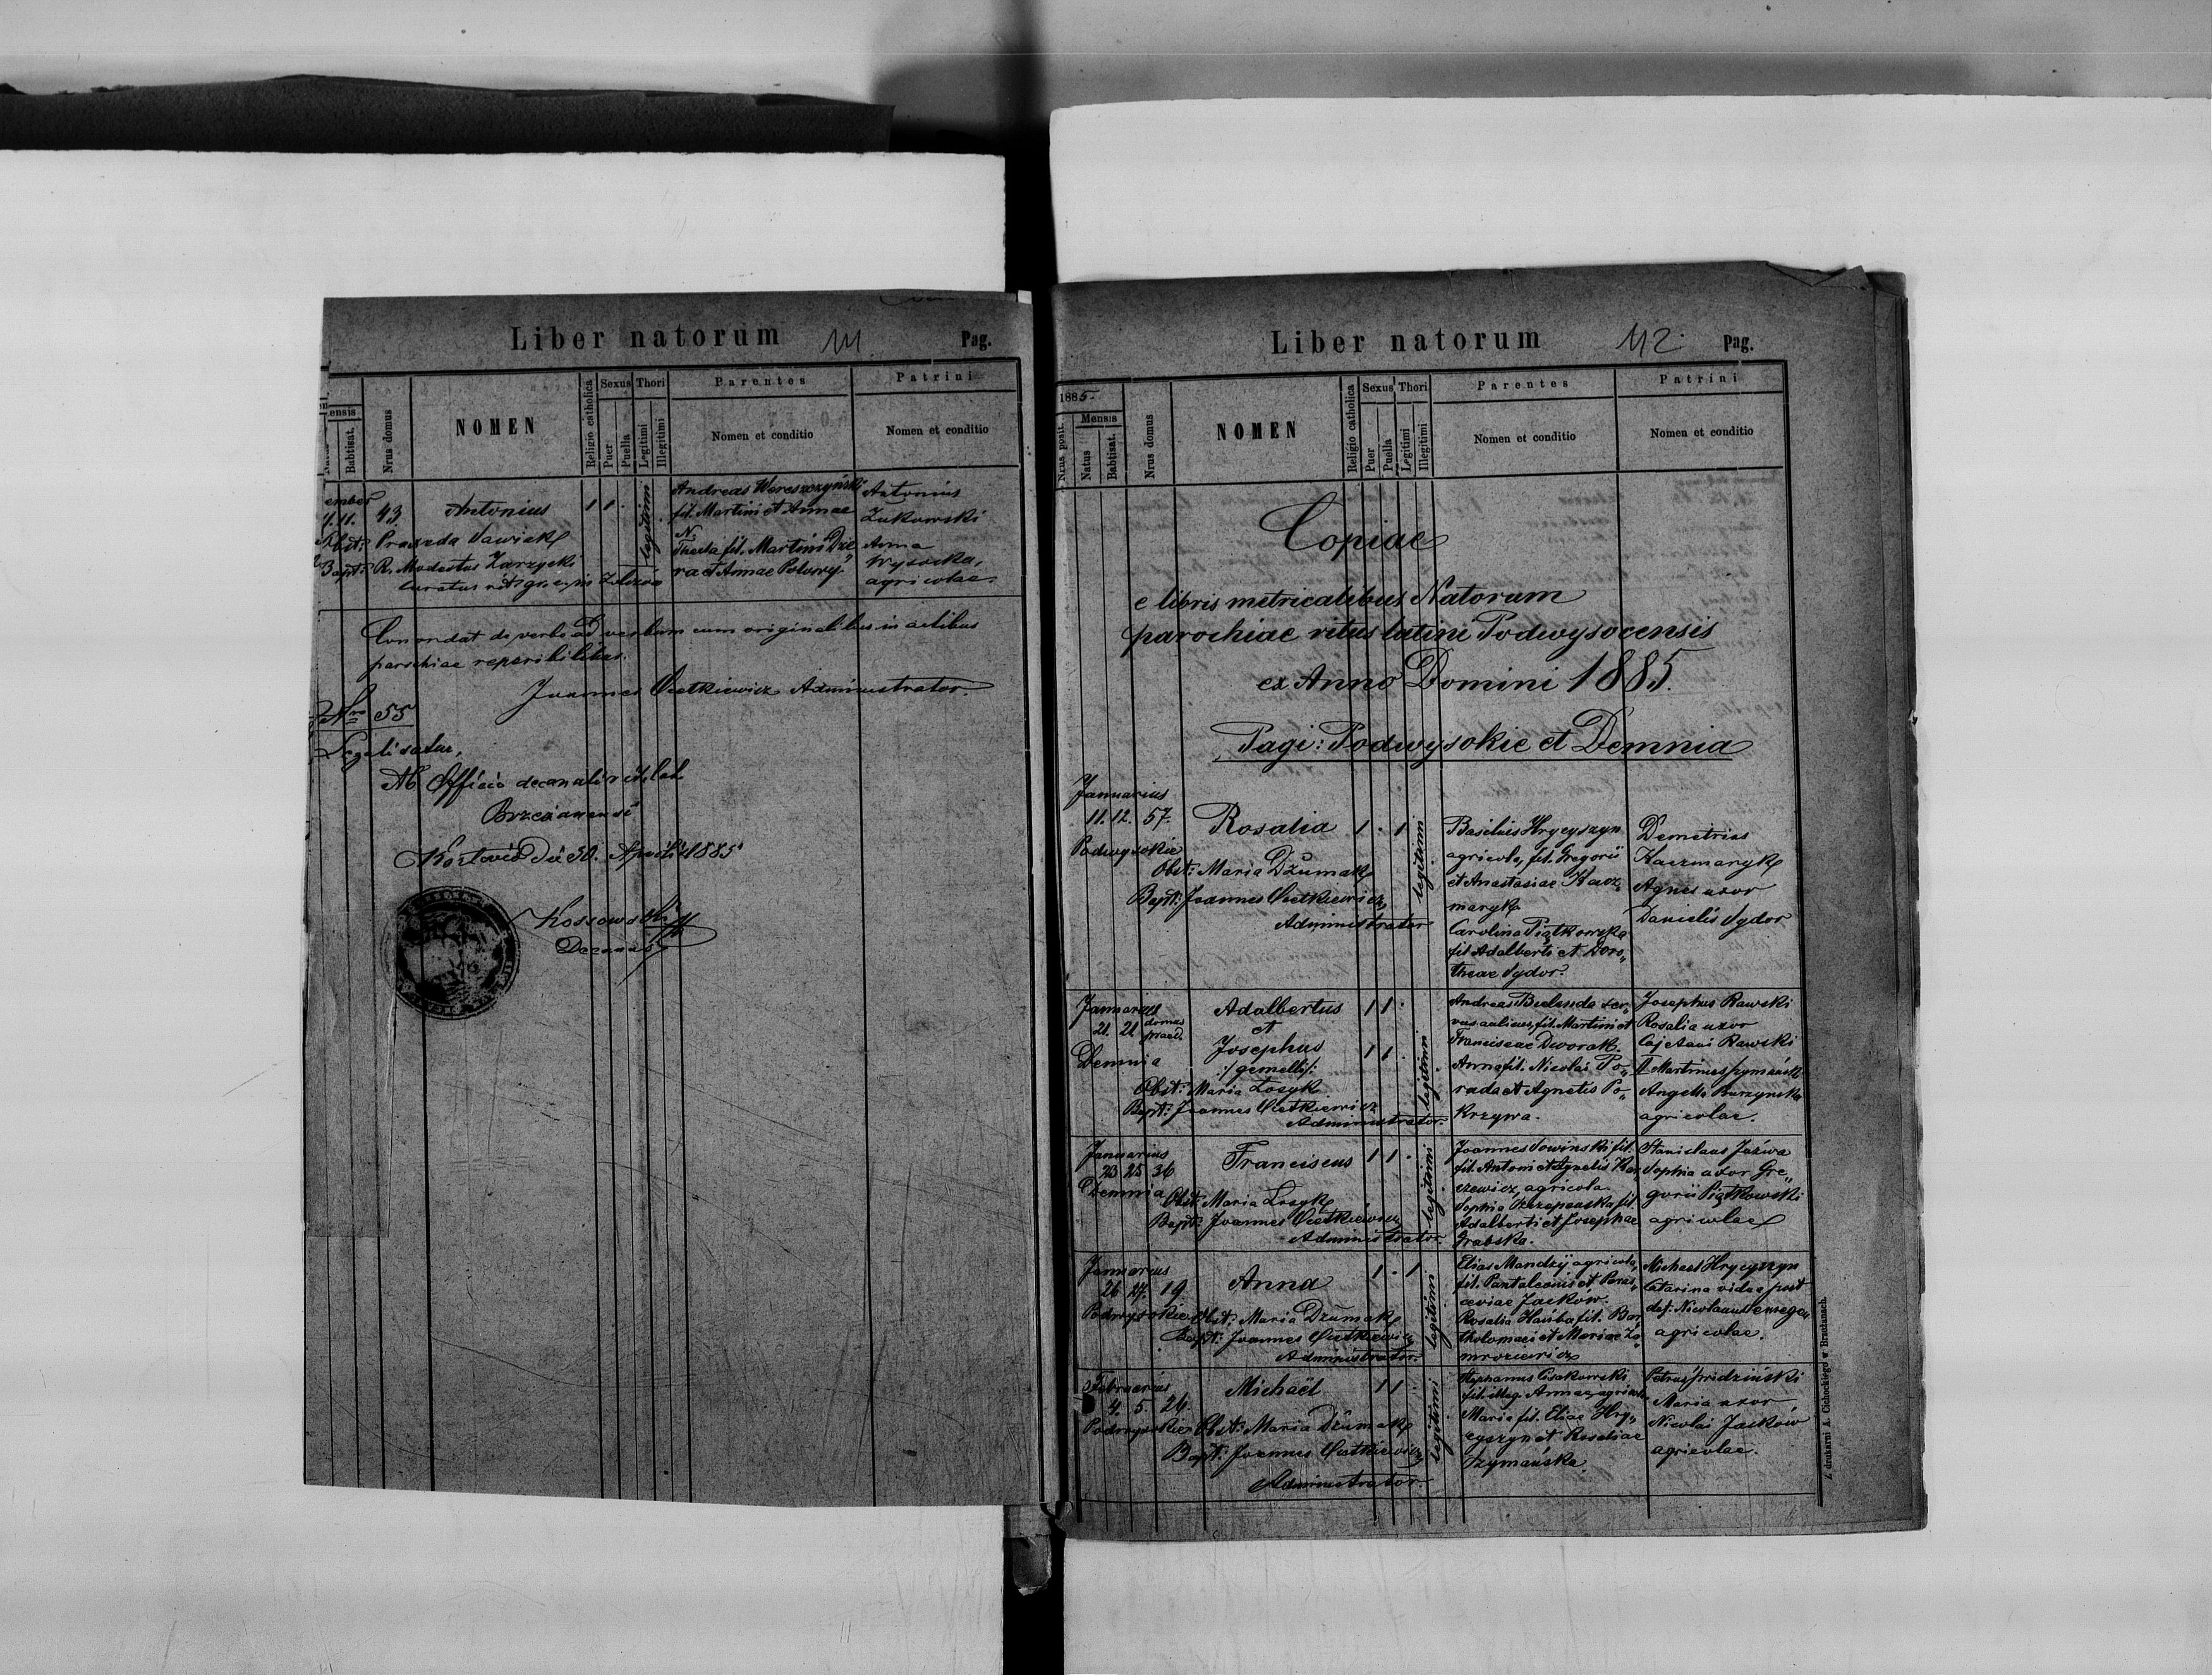 Liber natorum 111. Pag.
ensis
Babtisat.
Nrus domus
NOMEN
Religio catholica
Sexus
Puer
Puella
Thori
Legitimi
Illegitimi
Parentes
Nomen et conditio
Patrini
Nomen et conditio
ember
11. 43. Antonius 1 1 .
legitimi
Obst: Praxeda Sawiak
Bapt: R. Modestus Zarzycki
Curatus rit. gr.
Andreas Wereszczyński
fil. Martini et Annae
N.
Thecla fil. Martini Dże„
ra et Annae Polowy
Antonius
Żukowski
Anna
Wysocka,
agricolae.
Concordat de verbo ad verbum cum originalibus in actibus
parochiae reperibilibus.
Joannes Cietkiewicz Administrator.
Nro 55
Legalisatur,
Ab Officio decanali rit. lat.
Brzezanensi
Die 30. Aprilis 1885
Kossowski
Decanus
Liber natorum 112. Pag.
1885.
Nrus posit.
Mensis
Natus
Babtisat.
Nrus domus
NOMEN
Religio catholica
Sexus
Puer
Puella
Thori
Legitimi
Illegitimi
Parentes
Nomen et conditio
Patrini
Nomen et conditio
Copiae
e libris metricalibus Natorum
parochiae ritus latini Podwysocensis
ex Anno Domini 1885.
Pagi: Podwysokie et Demnia
Januarius
11. 12. 57. Rosalia 1 . 1
Podwysokie
Obst: Maria Dżumak
Bapt: Joannes Cietkiewicz,
Administrator
legitimi
Basilius Hrycyszyn
agricola, fil. Gregorii
et Anastasiae Kacz„
maryk
Carolina Piątkowska
fil. Adalberti et Doro„
theae Sydor.
Demetrius
Kaczmaryk
Agnes uxor
Danielis Sydor
Januarius
21. 21 domus praed.
Demnia
Adalbertus 1 1 .
et
Josephus 1 1 .
/:gemelli:/
Obst: Maria Łosyk
Bapt: Joannes Cietkiewicz
Administrator.
legitimi
Andreas Bielenda ser„
vus aulicus, fil. Martini et
Franciscae Dworak.
Anna fil. Nicolai Po„
rada et Agnetis Po„
krzywa.
Josephus Rawski
Rosalia uxor
Cajetani Rawski
II Martinus Szymański
Angela Burzyńska
agricolae.
Januarius
23 25 36 Franciscus 1 1 .
Demnia
Obst: Maria Łosyk
Bapt: Joannes Cietkiewicz
Administrator.
legitimi
Joannes Sowiński fil.
fil. Antoni et Agnetis
agricola.
Sophia Szczepańska fil.
Adalberti et Josephae
Grabska.
Stanislaus Jaźwa
Sophia uxor Gre„
gorii Piątkowski
agricolae
Januarius
26 27. 19. Anna 1 . 1
Podwysokie
Obst: Maria Dżumak
Bapt: Joannes Cietkiewicz
Administrator.
legitimi
Elias Mandzij agricola,
fil. Pantaleonis et Paras„
ceviae Jacków.
Rosalia fil. Bar„
tholomaei et Mariae Za„
mroziewicz
Michael Hrycyszyn
Catarina vidua post
def: Nicolaum
agricolae.
Februarius
4. 5 24. Michaël 1 1 .
Podwysokie
Obst: Maria Dżumak
Bapt: Joannes Cietkiewicz
Administrator.
legitimi
Stephanus Osakowski
fil. illeg. Annae, agricola,
Maria fil. Eliae Hry„
cyszyn et Rosaliae
Szymańska.
Petrus Śmidziński
Maria uxor
Nicolai Jacków
agricolae.
Z drukarni A. Cichockiego w Brzeżanach.